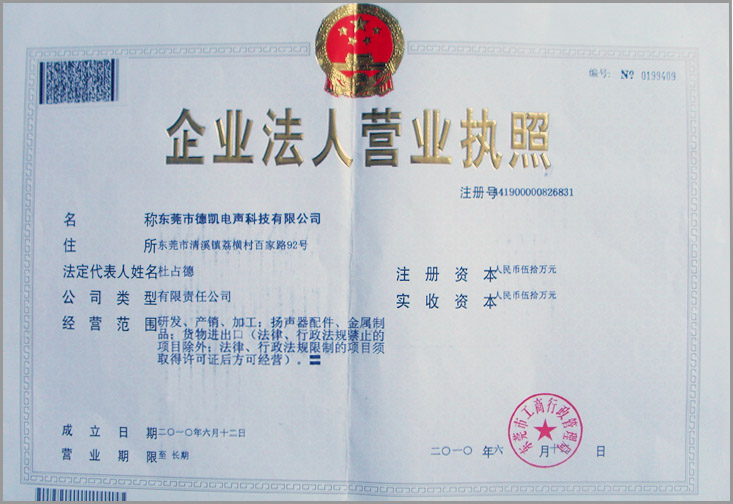 编号: Nº 0199409
企业法人营业执照
注册号 441900000826831
名称 东莞市德凯电声科技有限公司
住所 东莞市清溪镇荔横村百家路92号
法定代表人姓名 杜占德
注册资本 人民币伍拾万元
公司类型 有限责任公司
实收资本 人民币伍拾万元
经营范围 研发、产销、加工：扬声器配件、金属制
品；货物进出口（法律、行政法规禁止的
项目除外；法律、行政法规限制的项目须
取得许可证后方可经营）。
东莞市工商行政管理局
成立日期 二〇一〇年六月十二日
二〇一〇年六月十 日
营业期限 至 长期